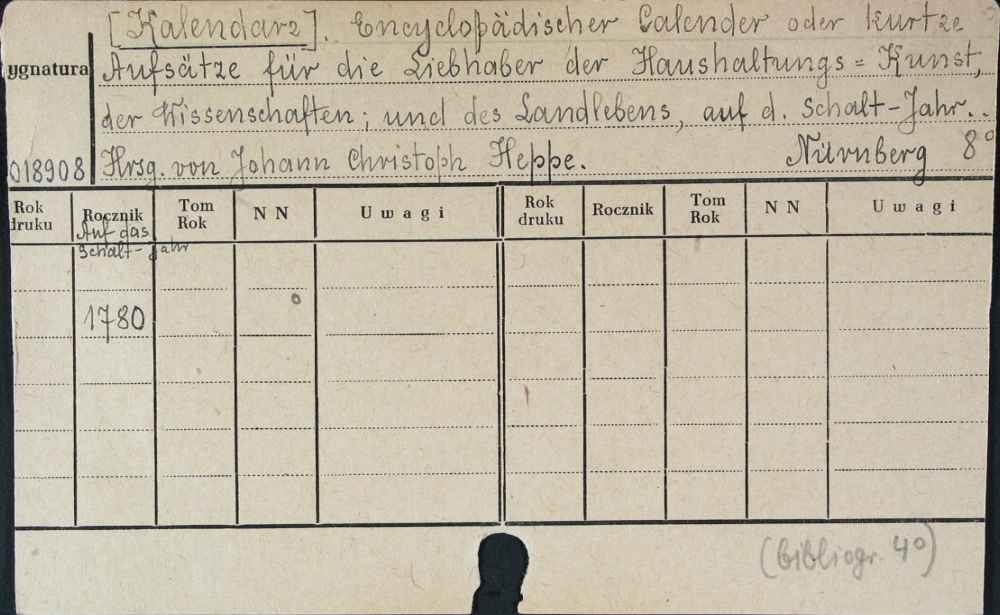 [Kalendarz]. Encyclopädischer Calender oder kurtze
ygnatura Aufsätze für die Liebhaber der Haushaltungs = Kunst,
der Wissenschaften; und des Landlebens, auf d. Schalt-Jahr..
018908 Hrsg. von Johann Christoph Heppe. Nürnberg 8°
Rok druku Rocznik Tom Rok N N Uwagi Rok druku Rocznik Tom Rok N N Uwagi
Auf das
Schalt-Jahr
1780
(bibliogr. 4°)